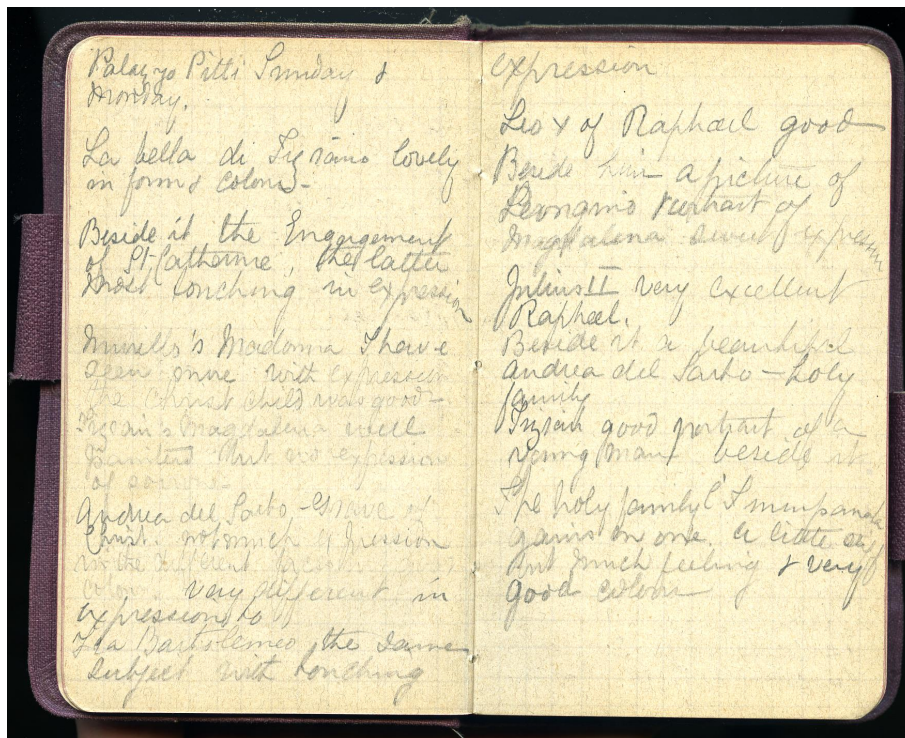 Palazzo Pitti Sunday &
Monday.
La bella di Tiziano lovely
in form & colour.
Beside it the Engagement
of St. Catherine, the latter
most touching in expression
Murello's Madonna I have
seen more with expression
The Christ child was good
Tizian's Magdalena well
painted but no expression
of sorrow.
Andrea del Sarto - Grave of
Christ. not much expression
in the different faces
colour. very different in
expression to
Fra Bartolemeo, the same
subject with touching
expression
Leo X of Raphael good
Beside him a picture of
portrait of
Magdalena sweet expression
Julius II very excellent
Raphael.
Beside it a beautiful
Andrea del Sarto - holy
family
Tizian good portrait of a
young man beside it
The holy family l'Impanata
gains on one. a little stiff
but much feeling & very
good colour